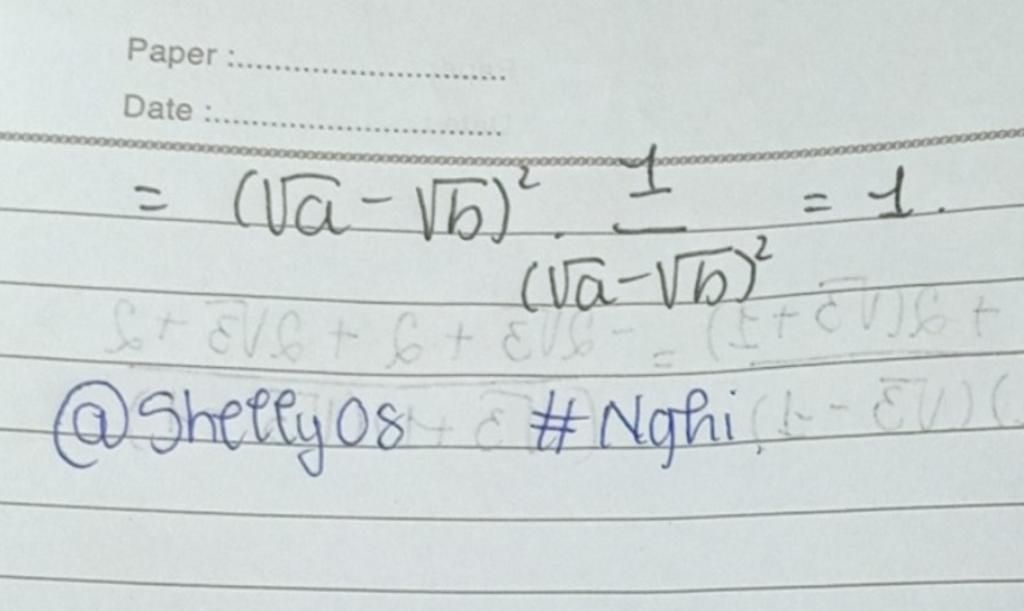 Paper :
Date :
= (√a - √b)² . 1/(√a - √b)² = 1.
@Shelly08 #Nghi